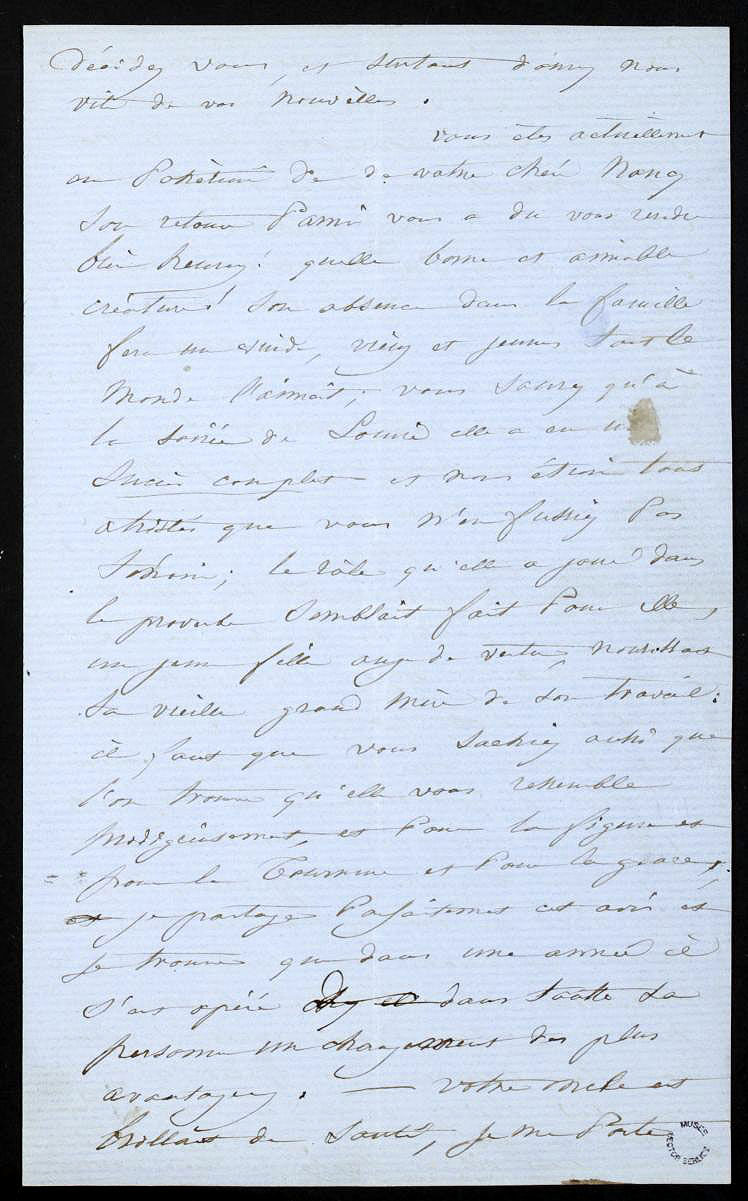 décidez vous, et surtout donnez nous
vite de vos nouvelles.
vous êtes actuellement
en de votre chère Nancy
son retour Parmi vous a du vous rendre
bien heureux! quelle bonne et aimable
créature! Son absence dans la famille
fera un vuide, vieux et jeunes tout le
monde l'aimait; vous saurez qu'à
la soirée de Louise elle a eu un
Succès complet et nous étions tous
attristés que vous n'en fussiez Pas
témoin; le rôle qu'elle a joué dans
le proverbe semblait fait Pour elle,
une jeune fille ange de vertu, nourissant
sa vieille grand mère de son travail:
il faut que vous sachiez aussi que
l'on trouve qu'elle vous ressemble
prodigieusement, et Pour la figure et
pour la Tournure et Pour la grace,
et je partage Parfaitement cet avis et
je trouve que dans une année il
s'est opéré dans toutte sa
personne un changement des plus
avantageux. — votre oncle est
brillant de santé, je me Porte
MUSEE
HECTOR BERLIOZ